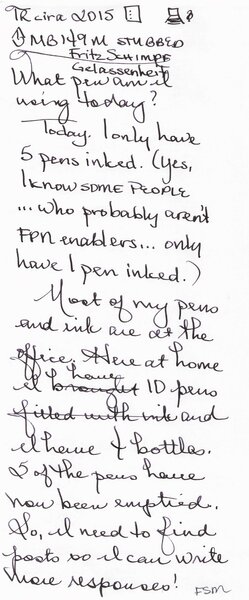 TR cira 2015
MB149M STUBBED
Fritz Schimpf
Gelassenheit
What pen am I
using today?
Today. I only have
5 pens inked. (Yes,
I know SOME PEOPLE
... who probably aren't
FPN enablers... only
have 1 pen inked.)
Most of my pens
and ink are at the
office. Here at home
I have
I brought 10 pens
filled with ink and
I have 4 bottles.
5 of the pens have
now been emptied.
So, I need to find
posts so I can write
more responses!
FSM